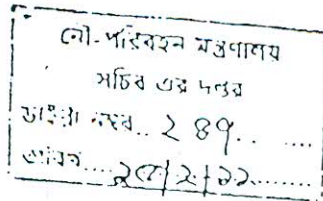 নৌ-পরিবহন মন্ত্রণালয়
সচিব এর দপ্তর
ডাইরী নম্বর.. ২৪৭.. ......
তারিখ.....